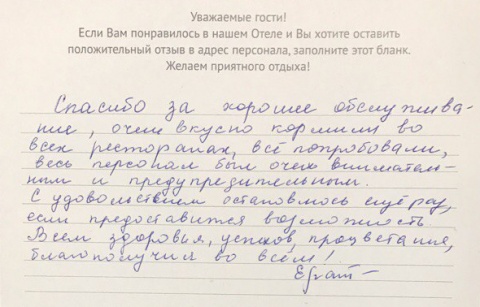 Уважаемые гости!
Если Вам понравилось в нашем Отеле и Вы хотите оставить
положительный отзыв в адрес персонала, заполните этот бланк.
Желаем приятного отдыха!
Спасибо за хорошее обслужива-
ние, очень вкусно кормили во
всех ресторанах, всё попробовали,
весь персонал был очень вниматель-
ным и предупредительным.
С удовольствием остановлюсь ещё раз,
если предоставится возможность.
Всем здоровья, успехов, процветания,
благополучия во всём!